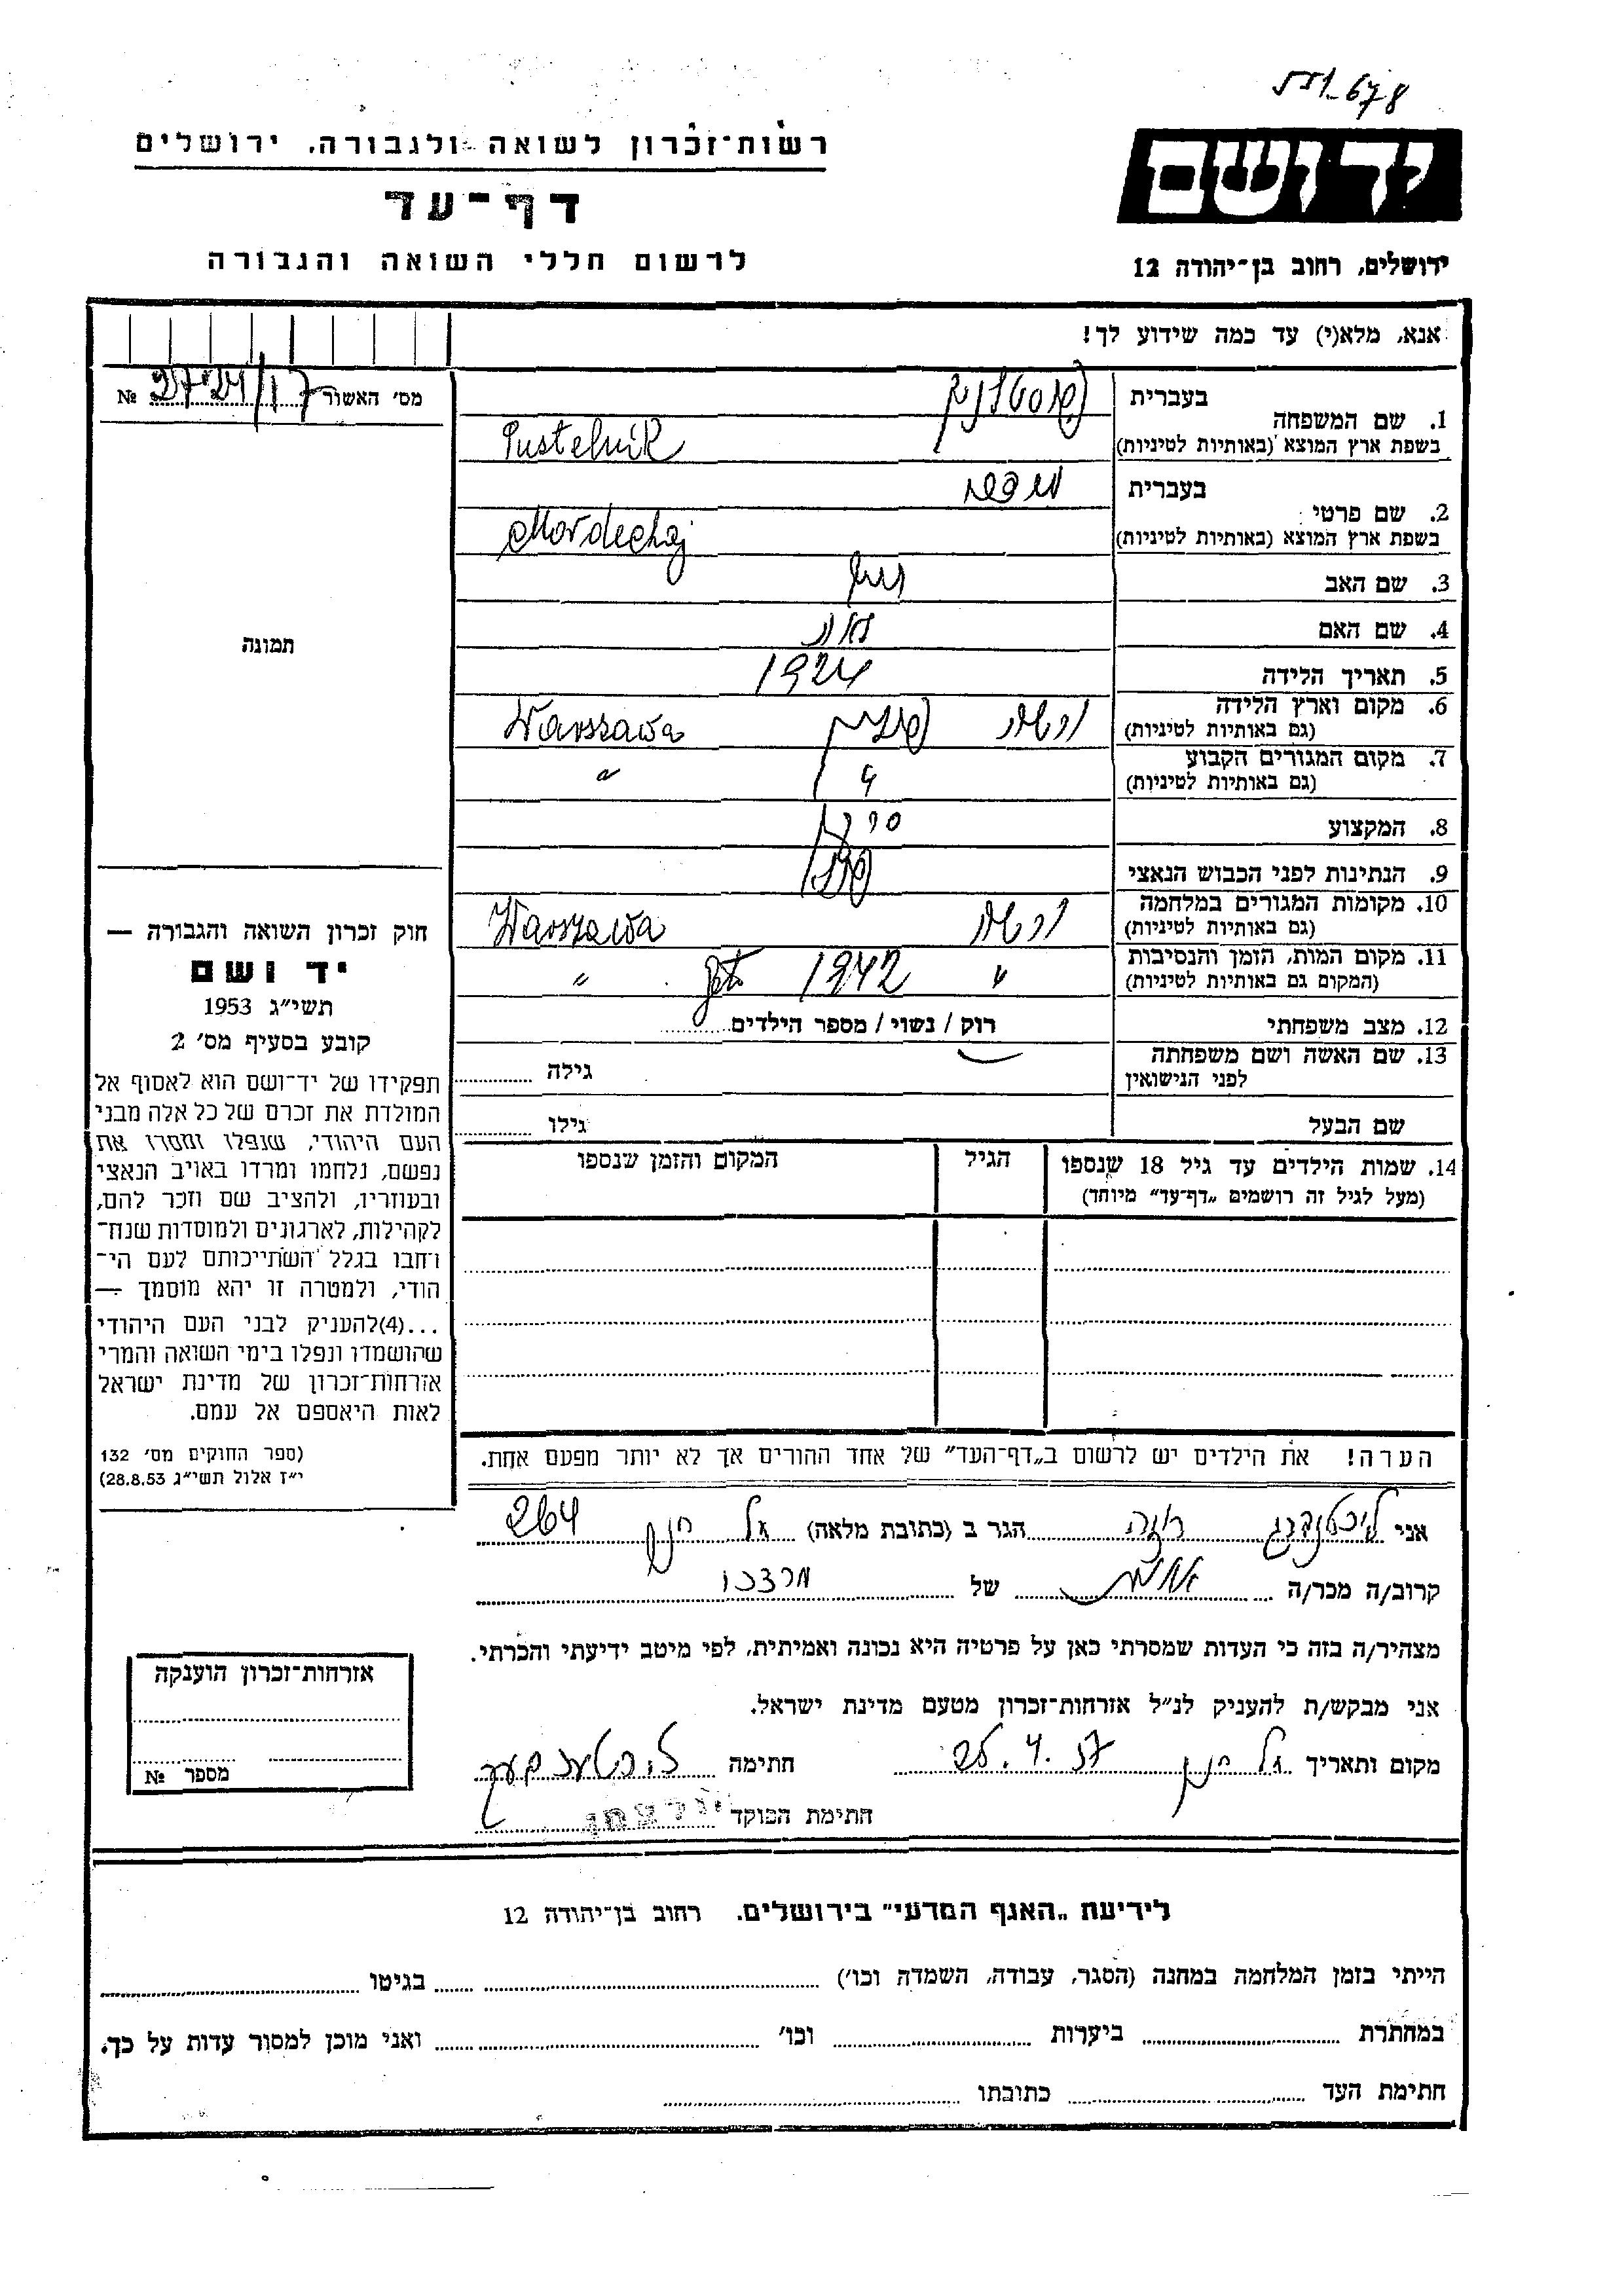 678
רשות־זכרון לשואה ולגבורה, ירושלים
יד ושם
דף־עד
לרשום חללי השואה והגבורה
ירושלים, רחוב בן־יהודה 12
אנא, מלא(י) עד כמה שידוע לך!
מס׳ האשור №
1. שם המשפחה
בעברית פוסטלניק
בשפת ארץ המוצא (באותיות לטיניות) Pustelnik
2. שם פרטי
בעברית מרדכי
בשפת ארץ המוצא (באותיות לטיניות) Mordechaj
3. שם האב
4. שם האם
5. תאריך הלידה 1924
6. מקום וארץ הלידה ורשה פולין Warszawa
(גם באותיות לטיניות)
7. מקום המגורים הקבוע " "
(גם באותיות לטיניות)
8. המקצוע
9. הנתינות לפני הכבוש הנאצי
10. מקומות המגורים במלחמה ורשה Warszawa
(גם באותיות לטיניות)
11. מקום המות, הזמן והנסיבות " 1942 "
(המקום גם באותיות לטיניות)
12. מצב משפחתי רוק / נשוי / מספר הילדים
13. שם האשה ושם משפחתה גילה
לפני הנישואין
שם הבעל גילו
14. שמות הילדים עד גיל 18 שנספו הגיל המקום והזמן שנספו
(מעל לגיל זה רושמים „דף־עד״ מיוחד)
הערה! את הילדים יש לרשום ב„דף־העד״ של אחד ההורים אך לא יותר מפעם אחת.
תמונה
חוק זכרון השואה והגבורה —
יד ושם
תשי״ג 1953
קובע בסעיף מס׳ 2
תפקידו של יד־ושם הוא לאסוף אל
המולדת את זכרם של כל אלה מבני
העם היהודי, שנפלו ומסרו את
נפשם, נלחמו ומרדו באויב הנאצי
ובעוזריו, ולהציב שם וזכר להם,
לקהילות, לארגונים ולמוסדות שנח־
רחבו בגלל השתייכותם לעם הי־
הודי, ולמטרה זו יהא מוסמך —
...(4)להעניק לבני העם היהודי
שהושמדו ונפלו בימי השואה והמרי
אזרחות־זכרון של מדינת ישראל
לאות היאספם אל עמם.
(ספר החוקים מס׳ 132
י״ז אלול תשי״ג 28.8.53)
אני ליכטנברג הגר ב (כתובת מלאה) 264
קרוב/ה מכר/ה של מרדכי
מצהיר/ה בזה כי העדות שמסרתי כאן על פרטיה היא נכונה ואמיתית, לפי מיטב ידיעתי והכרתי.
אני מבקש/ת להעניק לנ״ל אזרחות־זכרון מטעם מדינת ישראל.
מקום ותאריך חתימה
חתימת הפוקד
אזרחות־זכרון הוענקה
מספר №
לידיעת „האגף המדעי״ בירושלים, רחוב בן־יהודה 12
הייתי בזמן המלחמה במחנה (הסגר, עבודה, השמדה וכו׳) בגיטו
במחתרת ביערות וכו׳ ואני מוכן למסור עדות על כך.
חתימת העד כתובתו